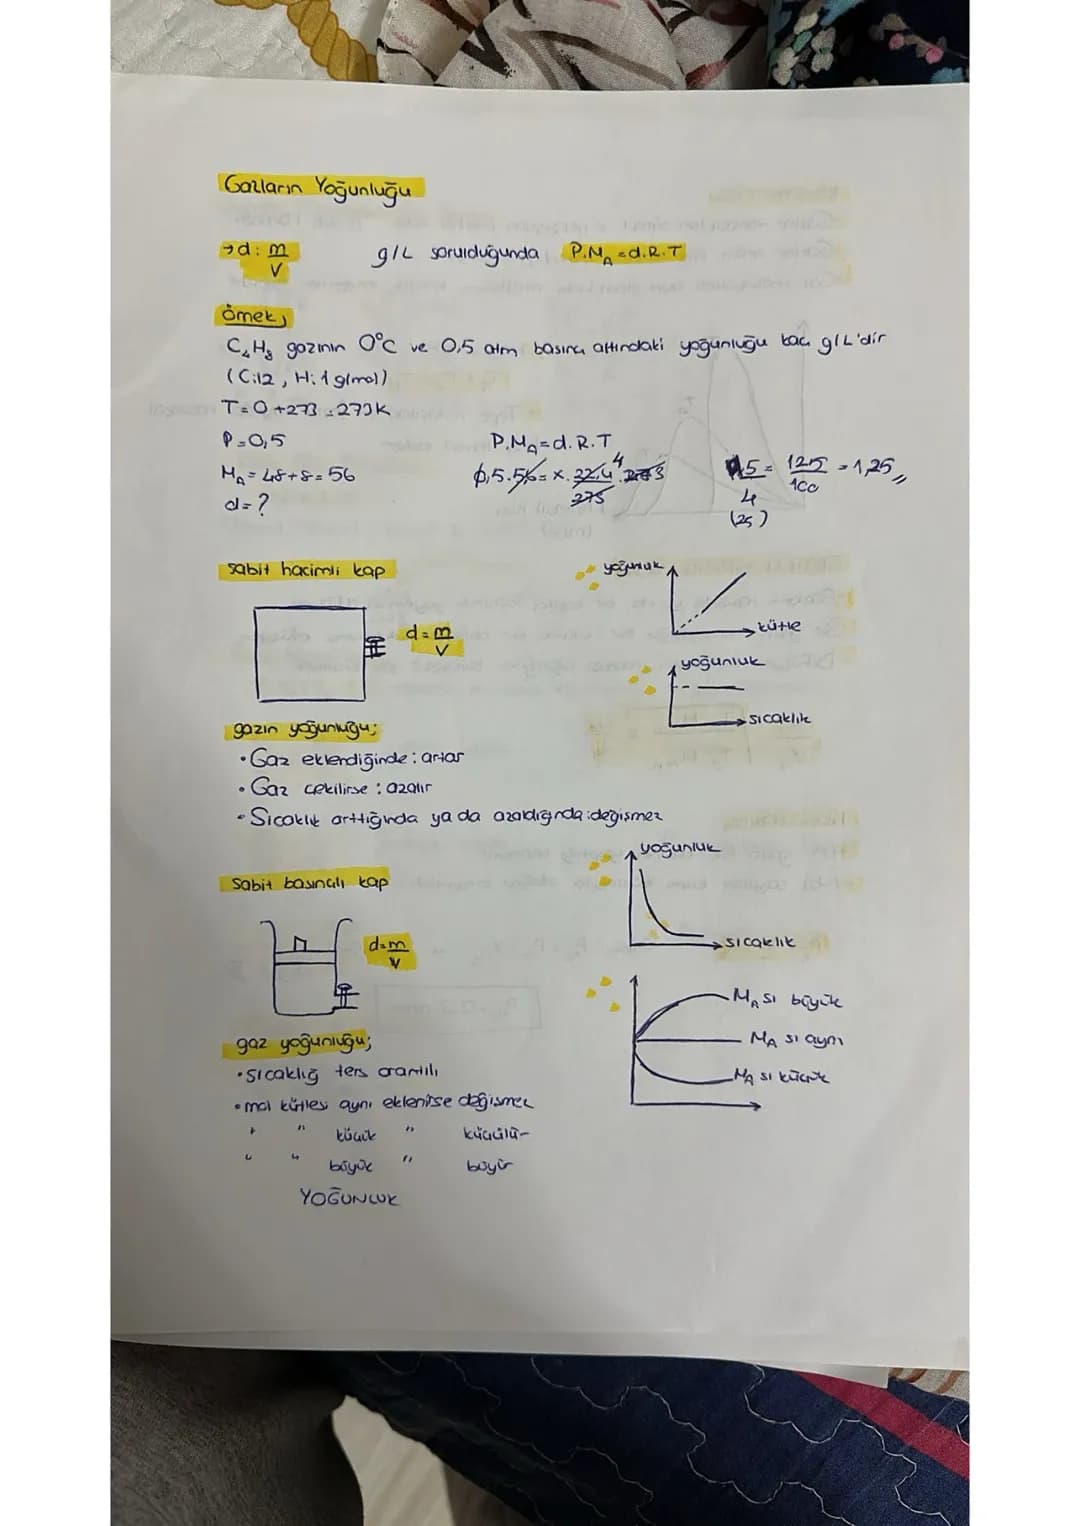 Gazların Yoğunluğu
→ d: m/V g/L sorulduğunda P.M_A = d.R.T
Örnek;
C₄H₈ gazının 0°C ve 0,5 atm basınç altındaki yoğunluğu kaç g/L'dir
(C:12, H:1 g/mol)
T = 0 + 273 = 273K
P = 0,5 P.M_A = d.R.T
M_A = 48+8 = 56 0,5.56 = x. 22,4/273 .273 4 5/4 = 125/100 = 1,25,,
d = ? (25)
sabit hacimli kap
d = m/V
yoğunluk
kütle
yoğunluk
sıcaklık
gazın yoğunluğu;
• Gaz eklendiğinde : artar
• Gaz çekilirse : azalır
• Sıcaklık arttığında ya da azaldığında : değişmez
Sabit basınçlı kap
d = m/V
yoğunluk
sıcaklık
M_A sı büyük
M_A sı aynı
M_A sı küçük
gaz yoğunluğu;
• sıcaklığ ters orantılı
• mol kütlesi aynı eklenirse değişmez
" " küçük " küçülür
" " büyük " büyür
YOĞUNLUK